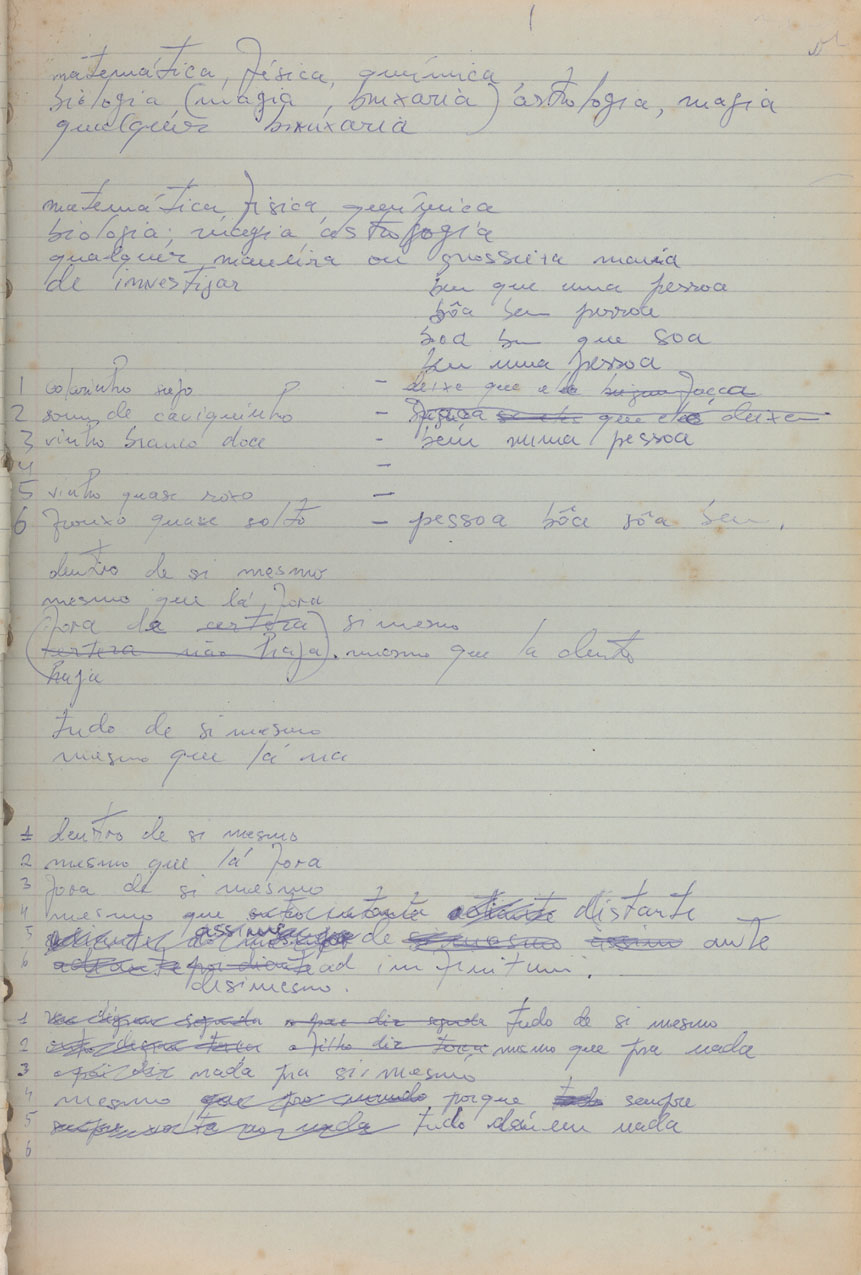 1
matemática, física, química
biologia (magia, bruxaria) astrologia, magia
qualquer bruxaria
matemática física química
biologia; magia astrologia
qualquer maneira ou grosseira mania
de investigar
bem que uma pessoa
bôa bem pessoa
boa bem que soa
bem uma pessoa
1 colarinho sujo - deixe que ela faça
2 som de cavaquinho - faça que ela deixe
3 vinho branco doce - bem numa pessoa
4 -
5 vinho quase roxo -
6 frouxo quase solto - pessoa bôa sôa bem.
dentro de si mesmo
mesmo que lá fora
(fora de certeza) si mesmo
certeza não haja). mesmo que la dentro
haja
tudo de si mesmo
mesmo que lá na
1 dentro de si mesmo
2 mesmo que lá fora
3 fora de si mesmo
4 mesmo que distante
5 assim de si mesmo assim ante
6 ad infinitum.
de si mesmo.
1 tudo de si mesmo
2 o filho diz mesmo que pra nada
3 nada pra si mesmo
4 mesmo porque tudo sempre
5 tudo dá em nada
6